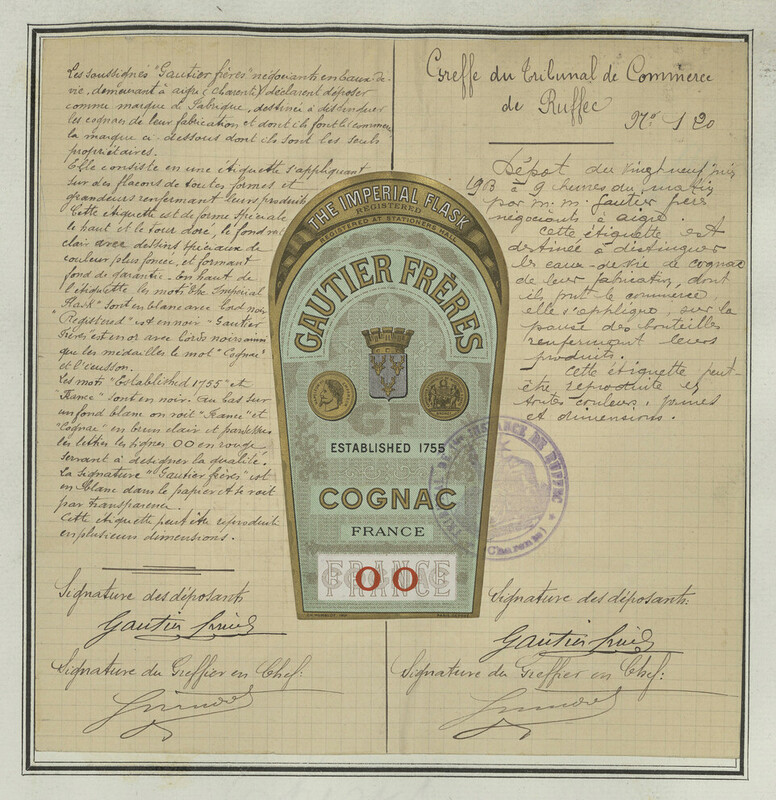 Les soussignés "Gautier frères" négociants en eaux-de-
vie, demeurant à Aigre (Charente) déclarent déposer
comme marque de Fabrique, destinée à distinguer
les cognacs de leur fabrication et dont ils font le commerce
la marque ci-dessous dont ils sont les seuls
propriétaires.
Elle consiste en une étiquette s'appliquant
sur des flacons de toutes formes et
grandeurs renfermant leurs produits
Cette étiquette est de forme spéciale
le haut et le tour doré, le fond vert
clair avec dessins spéciaux de
couleur plus foncée, et formant
fond de garantie. En haut de
l'étiquette les mots The Imperial
Flask" sont en blanc avec bord noir
"Registered" est en noir - Gautier
Frères est en or avec bords noirs ainsi
que les médailles le mot "Cognac"
et l'écusson.
Les mots "Established 1755" et
"France" sont en noir. Au bas sur
un fond blanc on voit "France" et
"Cognac" en brun clair et par dessus
les lettres les signes OO en rouge
servant à désigner la qualité.
La signature "Gautier frères" est
en blanc dans le papier et se voit
par transparence.
Cette étiquette peut être reproduite
en plusieurs dimensions.
Signature des déposants
Gautier frères
Signature du Greffier en Chef:
THE IMPERIAL FLASK
REGISTERED
REGISTERED AT STATIONERS HALL
GAUTIER FRÈRES
GF
ESTABLISHED 1755
COGNAC
FRANCE
FRANCE
COGNAC
OO
Greffe du Tribunal de Commerce
de Ruffec
No. 120
Dépôt du vingt neuf
à 9 heures du matin
par m. m. Gautier frères
négociants à aigre.
Cette étiquette est
destinée à distinguer
les eaux-de-vie de cognac
de leur fabrication, dont
ils font le commerce,
elle s'applique, sur la
panse des bouteilles
renfermant leurs
produits.
Cette étiquette peut
être reproduite en
toutes couleurs, formes
et dimensions.
INSTANCE DE RUFFEC
(Charente)
Signature des déposants:
Gautier frères
Signature du Greffier en Chef: